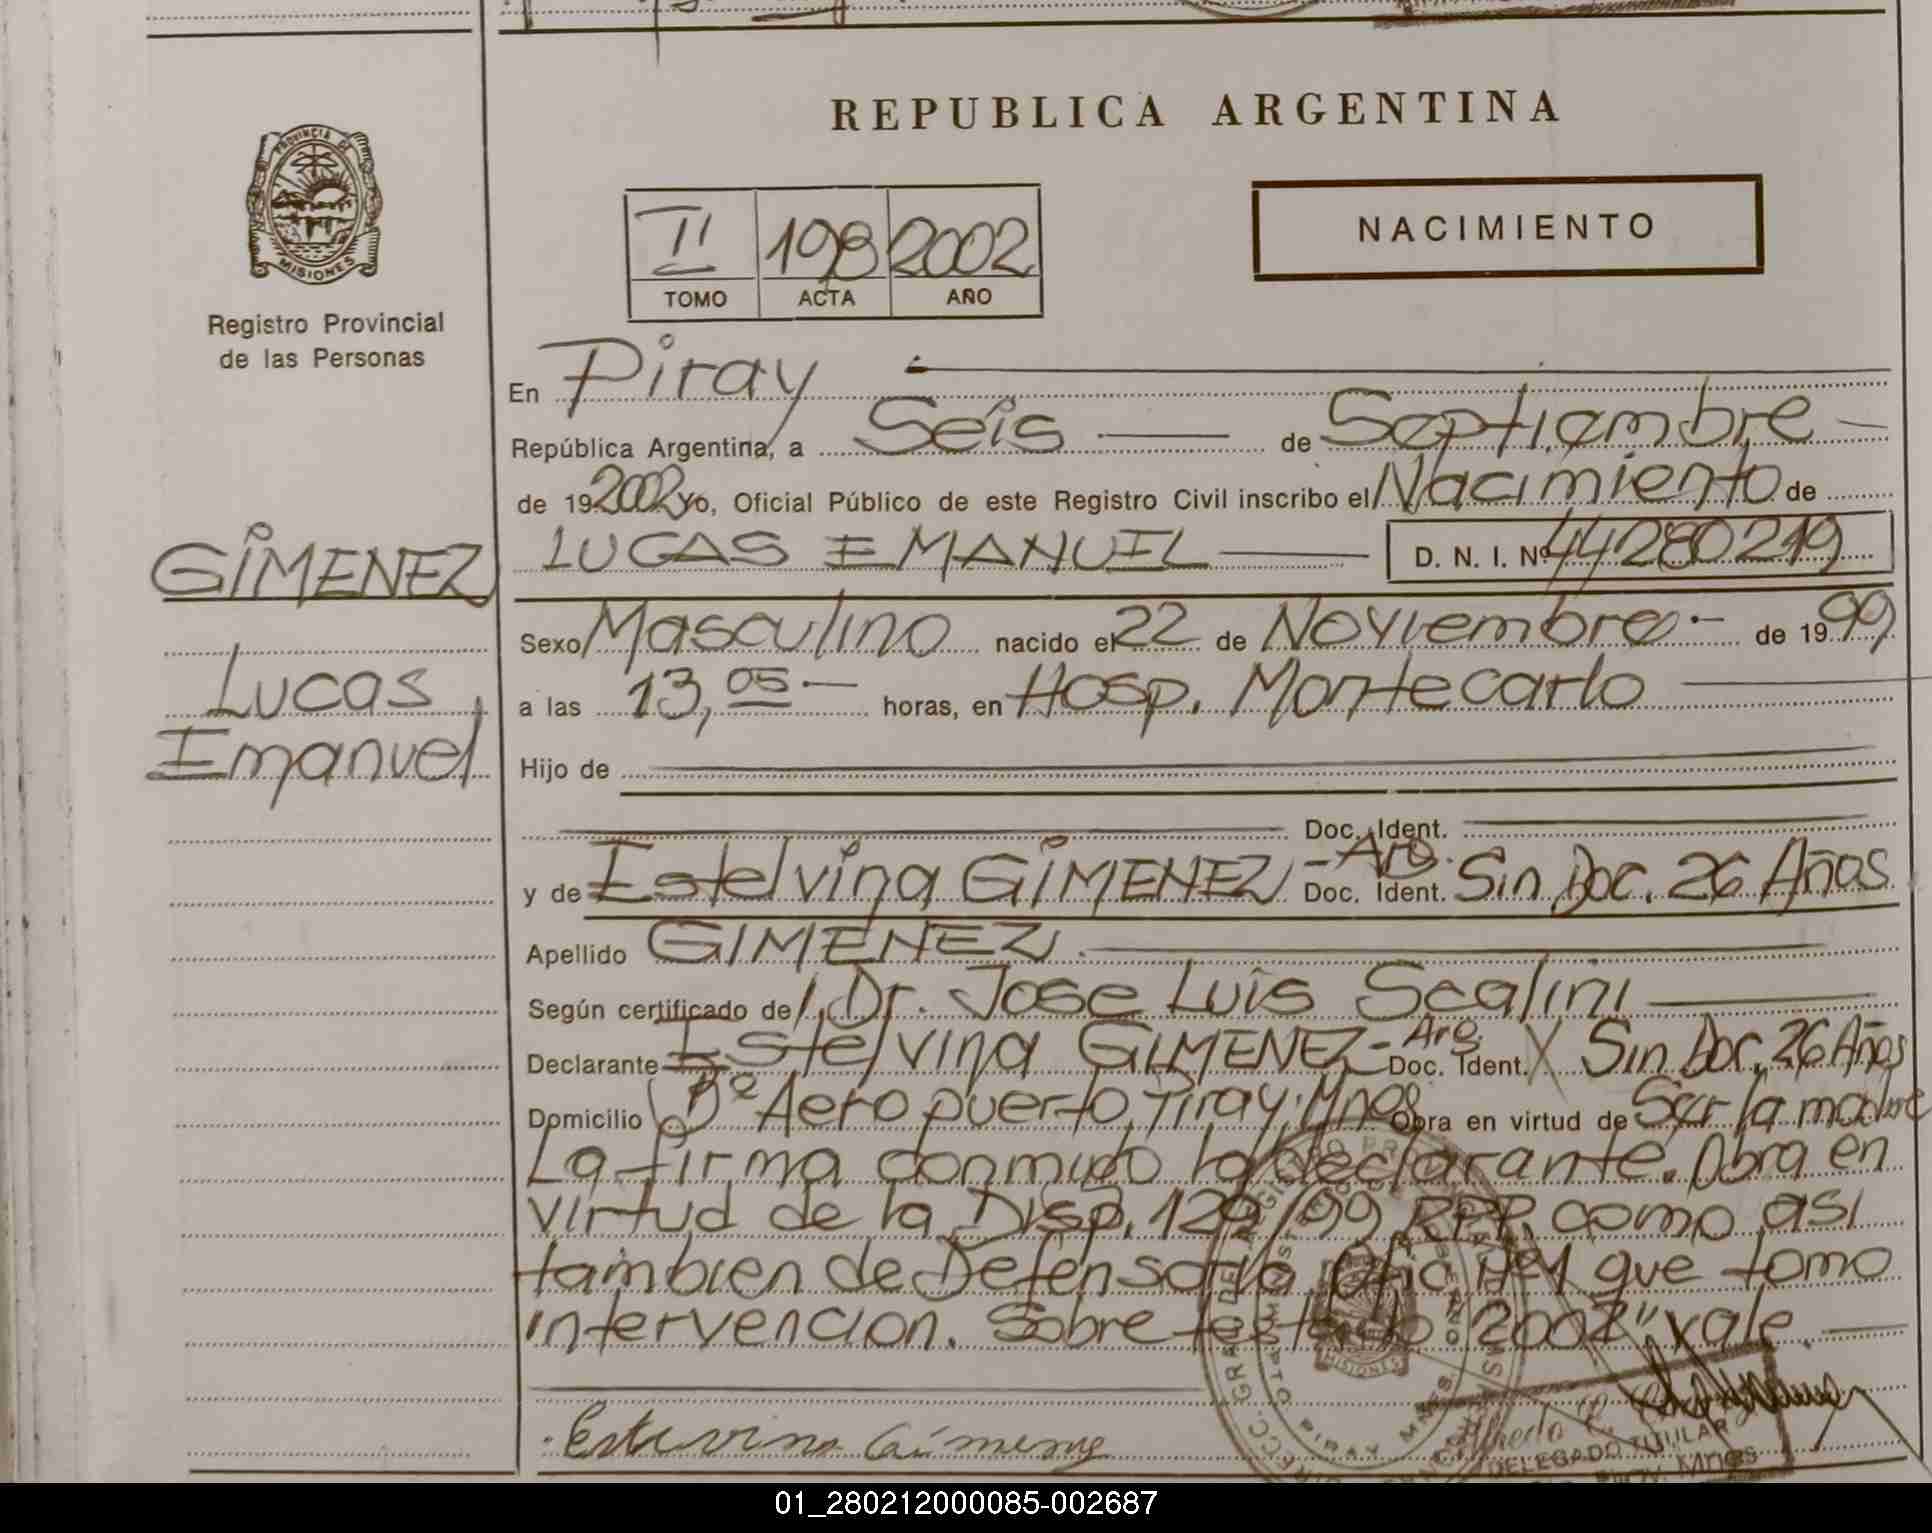 REPUBLICA ARGENTINA
PROVINCIA DE
MISIONES
Registro Provincial
de las Personas
II 198 2002
TOMO ACTA AÑO
NACIMIENTO
En Piray
República Argentina, a Seis de Septiembre
de 19 2002 Yo, Oficial Público de este Registro Civil inscribo el Nacimiento de
GIMENEZ
LUCAS EMANUEL D. N. I. Nº 44280219
Lucas
Emanuel
Sexo Masculino nacido el 22 de Noviembre.- de 19 99
a las 13,05.- horas, en Hosp. Montecarlo
Hijo de
Doc. Ident.
y de Estelvina GIMENEZ -Arg. Doc. Ident. Sin Doc. 26 Años
Apellido GIMENEZ.
Según certificado de Dr. Jose Luis Scalini
Declarante Estelvina GIMENEZ- Arg. Doc. Ident. Sin Doc. 26 Años
Domicilio Bº Aeropuerto, Piray, Mnes Obra en virtud de Ser la madre
La firma conmigo la declarante. Obra en
virtud de la Disp. 129/99 RPP. como asi
tambien de Defensoria Ofic Nº1 que tomo
intervencion. Sobre testado "2002" vale.
Alfredo
DELEGADO TITULAR
Piray, Mnes
PIRAY MNES.
MISIONES
01_280212000085-002687